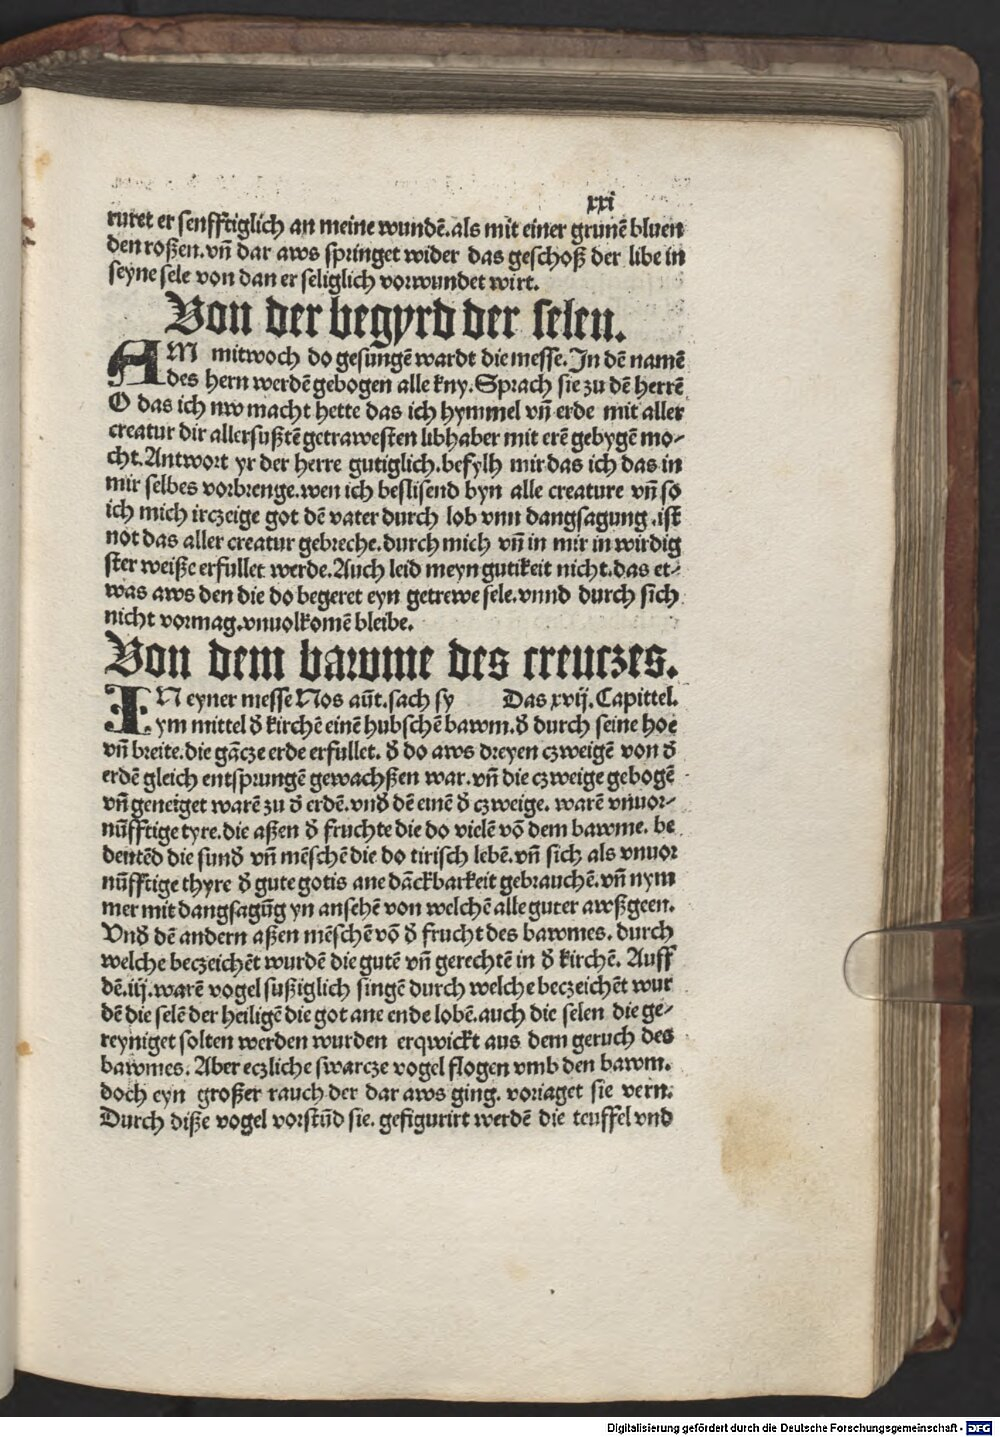 xxi
ruret er senfftiglich an meine wundẽ.als mit einer grunẽ bluen
den roßen.vñ dar aws springet wider das geschoß der libe in
seyne sele von dan er seliglich vorwundet wirt.
Von der begyrd der selen.
AM mitwoch do gesungẽ wardt die messe.In dẽ namẽ
des hern werdẽ gebogen alle kny.Sprach sie zu dẽ herrẽ
O das ich nw macht hette das ich hymmel vñ erde mit aller
creatur dir allersußtẽ getrawesten libhaber mit erẽ gebygẽ mo⸗
cht.Antwort yr der herre gutiglich.befylh mir das ich das in
mir selbes vorbrenge.wen ich beslisend byn alle creature vñ so
ich mich irczeige got dẽ vater durch lob vnn dangsagung.ist
not das aller creatur gebreche.durch mich vñ in mir in wirdig
ster weiße erfullet werde.Auch leid meyn gutikeit nicht.das et⸗
was aws den die do begeret eyn getrewe sele.vnnd durch sich
nicht vormag.vnuolkomẽ bleibe.
Von dem bawme des creuczes.
IN eyner messe Nos aũt.sach sy Das xvij.Capittel.
ym mittel d̕ kirchẽ einẽ hubschẽ bawm.d̕ durch seine hoe
vñ breite.die gãcze erde erfullet. d̕ do aws dreyen czweigẽ von d̕
erdẽ gleich entsprungẽ gewachßen war.vñ die czweige gebogẽ
vñ geneiget warẽ zu d̕ erdẽ.vnd̕ dẽ einẽ d̕ czweige. warẽ vnuor⸗
nũfftige tyre.die aßen d̕ fruchte die do vielẽ võ dem bawme. be
dentẽd die sund̕ vñ mẽschẽ die do tirisch lebẽ.vñ sich als vnuor
nũfftige thyre d̕ gute gotis ane dãckbarkeit gebrauchẽ.vñ nym
mer mit dangsagũg yn ansehẽ von welchẽ alle guter awßgeen.
Vnd̕ dẽ andern aßen mẽschẽ võ d̕ frucht des bawmes. durch
welche beczeichẽt wurdẽ die gutẽ vñ gerechtẽ in d̕ kirchẽ. Auff
dẽ.iij.warẽ vogel sußiglich singẽ durch welche beczeichẽt wur
dẽ die selẽ der heiligẽ die got ane ende lobẽ.auch die selen die ge⸗
reyniget solten werden wurden erqwickt aus dem geruch des
bawmes. Aber eczliche swarcze vogel flogen vmb den bawm.
doch eyn großer rauch der dar aws ging. voriaget sie vern.
Durch diße vogel vorstũd sie. gefigurirt werdẽ die teuffel vnd
Digitalisierung gefördert durch die Deutsche Forschungsgemeinschaft - DFG